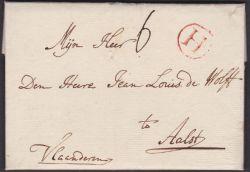 Mijn Heer 6
H
Den Heere Jean Louis de Wolff
to
Aalst
Vlaanderen